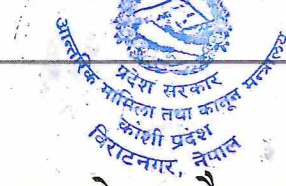 प्रदेश सरकार
आन्तरिक मामिला तथा कानून मन्त्रालय
कोशी प्रदेश
विराटनगर, नेपाल